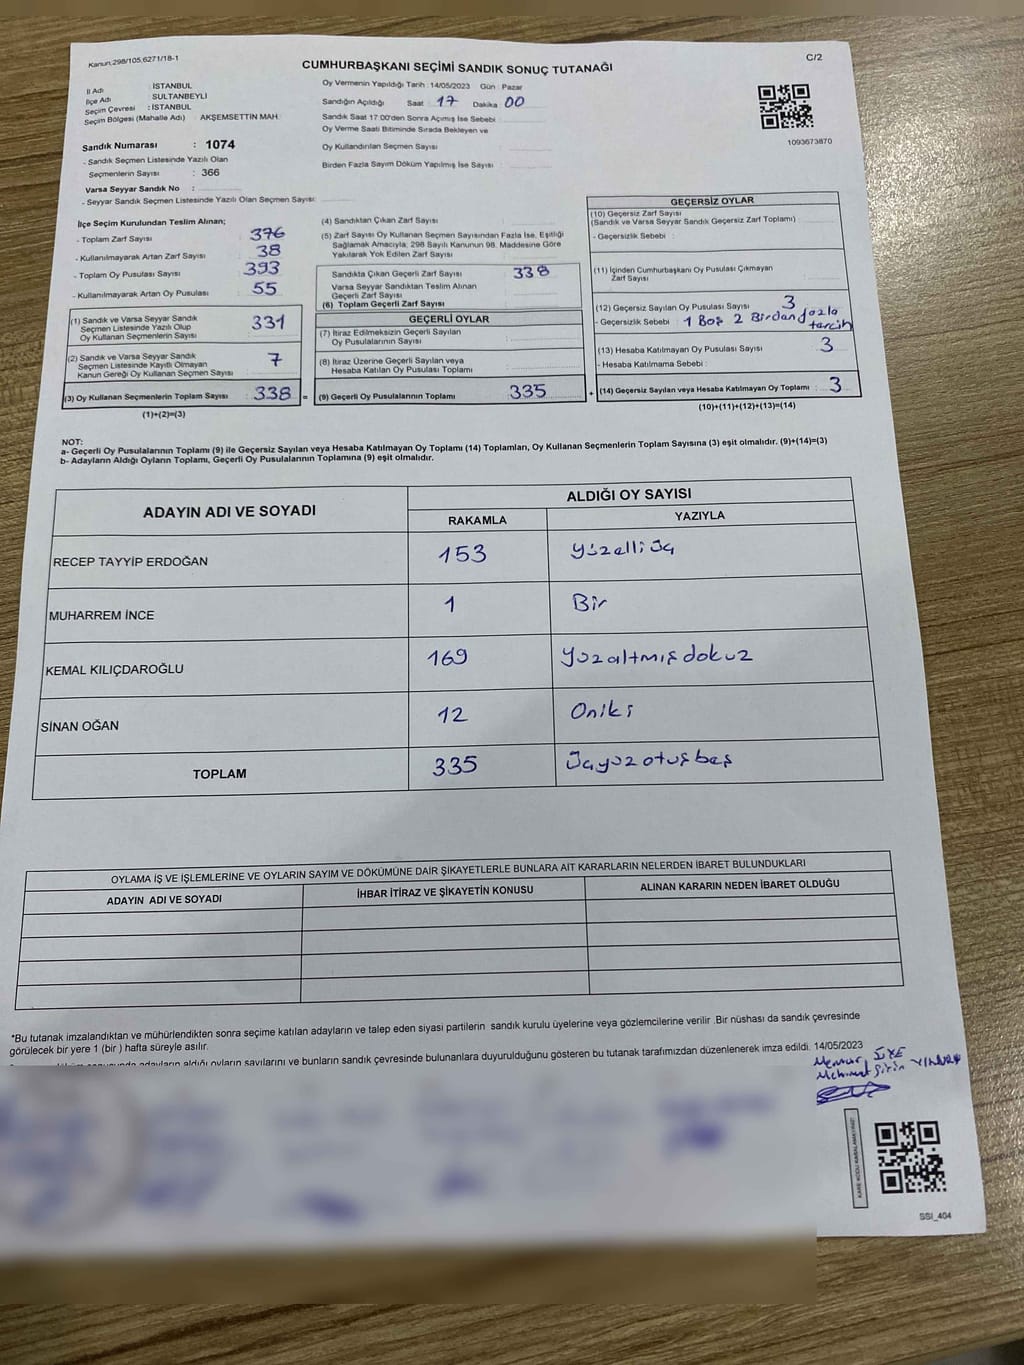 Kanun:298/105,6271/18-1
CUMHURBAŞKANI SEÇİMİ SANDIK SONUÇ TUTANAĞI
C/2
İl Adı : İSTANBUL
İlçe Adı : SULTANBEYLİ
Seçim Çevresi : İSTANBUL
Seçim Bölgesi (Mahalle Adı) AKŞEMSETTİN MAH.
Sandık Numarası : 1074
- Sandık Seçmen Listesinde Yazılı Olan
Seçmenlerin Sayısı : 366
Varsa Seyyar Sandık No :
- Seyyar Sandık Seçmen Listesinde Yazılı Olan Seçmen Sayısı:
Oy Vermenin Yapıldığı Tarih : 14/05/2023 Gün : Pazar
Sandığın Açıldığı Saat 17 Dakika 00
Sandık Saat 17:00'den Sonra Açımış İse Sebebi :
Oy Verme Saati Bitiminde Sırada Bekleyen ve
Oy Kullandırılan Seçmen Sayısı :
Birden Fazla Sayım Döküm Yapılmış İse Sayısı :
1093673870
İlçe Seçim Kurulundan Teslim Alınan;
- Toplam Zarf Sayısı : 376
- Kullanılmayarak Artan Zarf Sayısı : 38
- Toplam Oy Pusulası Sayısı : 393
- Kullanılmayarak Artan Oy Pusulası : 55
(1) Sandık ve Varsa Seyyar Sandık
Seçmen Listesinde Yazılı Olup
Oy Kullanan Seçmenlerin Sayısı : 331
(2) Sandık ve Varsa Seyyar Sandık
Seçmen Listesinde Kayıtlı Olmayan
Kanun Gereği Oy Kullanan Seçmen Sayısı : 7
(3) Oy Kullanan Seçmenlerin Toplam Sayısı : 338 =
(1)+(2)=(3)
(4) Sandıktan Çıkan Zarf Sayısı :
(5) Zarf Sayısı Oy Kullanan Seçmen Sayısından Fazla İse, Eşitliği
Sağlamak Amacıyla, 298 Sayılı Kanunun 98. Maddesine Göre
Yakılarak Yok Edilen Zarf Sayısı :
Sandıkta Çıkan Geçerli Zarf Sayısı : 338
Varsa Seyyar Sandıktan Teslim Alınan
Geçerli Zarf Sayısı :
(6) Toplam Geçerli Zarf Sayısı :
GEÇERLİ OYLAR
(7) İtiraz Edilmeksizin Geçerli Sayılan
Oy Pusulalarının Sayısı :
(8) İtiraz Üzerine Geçerli Sayılan veya
Hesaba Katılan Oy Pusulası Toplamı :
(9) Geçerli Oy Pusulalarının Toplamı : 335 +
GEÇERSİZ OYLAR
(10) Geçersiz Zarf Sayısı
(Sandık ve Varsa Seyyar Sandık Geçersiz Zarf Toplamı) :
- Geçersizlik Sebebi :
(11) İçinden Cumhurbaşkanı Oy Pusulası Çıkmayan
Zarf Sayısı :
(12) Geçersiz Sayılan Oy Pusulası Sayısı : 3
- Geçersizlik Sebebi : 1 Boş 2 Birdan fazla
tarcih
(13) Hesaba Katılmayan Oy Pusulası Sayısı : 3
- Hesaba Katılmama Sebebi :
(14) Geçersiz Sayılan veya Hesaba Katılmayan Oy Toplamı : 3
(10)+(11)+(12)+(13)=(14)
NOT:
a- Geçerli Oy Pusulalarının Toplamı (9) ile Geçersiz Sayılan veya Hesaba Katılmayan Oy Toplamı (14) Toplamları, Oy Kullanan Seçmenlerin Toplam Sayısına (3) eşit olmalıdır. (9)+(14)=(3)
b- Adayların Aldığı Oyların Toplamı, Geçerli Oy Pusulalarının Toplamına (9) eşit olmalıdır.
ADAYIN ADI VE SOYADI
ALDIĞI OY SAYISI
RAKAMLA YAZIYLA
RECEP TAYYİP ERDOĞAN 153 yüzelliüç
MUHARREM İNCE 1 Bir
KEMAL KILIÇDAROĞLU 169 yüzaltmışdokuz
SİNAN OĞAN 12 Oniki
TOPLAM 335 üçyüzotuzbeş
OYLAMA İŞ VE İŞLEMLERİNE VE OYLARIN SAYIM VE DÖKÜMÜNE DAİR ŞİKAYETLERLE BUNLARA AİT KARARLARIN NELERDEN İBARET BULUNDUKLARI
ADAYIN ADI VE SOYADI İHBAR İTİRAZ VE ŞİKAYETİN KONUSU ALINAN KARARIN NEDEN İBARET OLDUĞU
*Bu tutanak imzalandıktan ve mühürlendikten sonra seçime katılan adayların ve talep eden siyasi partilerin sandık kurulu üyelerine veya gözlemcilerine verilir .Bir nüshası da sandık çevresinde
görülecek bir yere 1 (bir ) hafta süreyle asılır.
adayların aldığı oyların sayılarını ve bunların sandık çevresinde bulunanlara duyurulduğunu gösteren bu tutanak tarafımızdan düzenlenerek imza edildi. 14/05/2023
Memur ÜYE
Mehmet Şirin
SSI_404